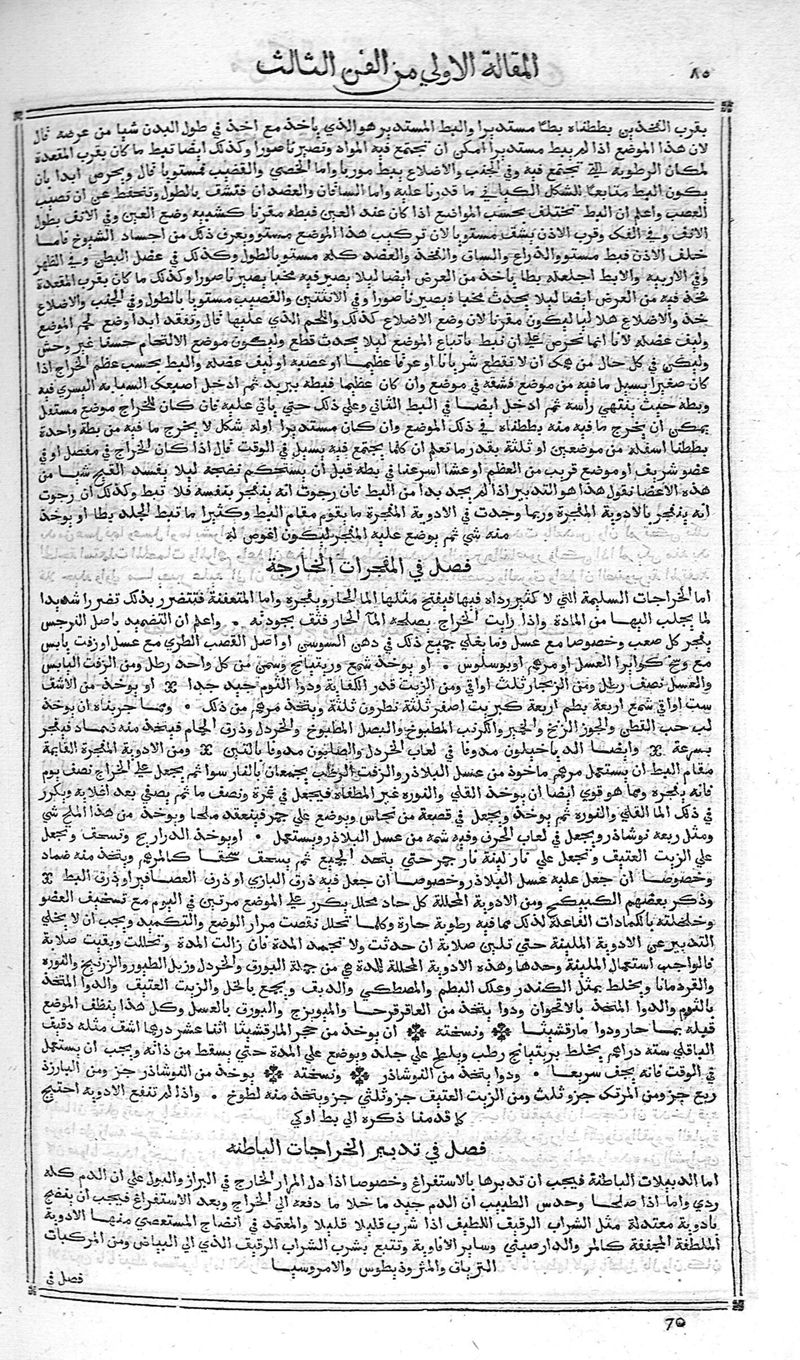 ٨٥ المقالة الاولي من الفن الثالث
بقرب الفخذين بططناه بطا مستديرا والبط المستدير هو الذي ياخذ مع اخذ في طول البدن شيا من عرضه قال
لان هذا الموضع اذا لم يبط مستديرا امكن ان تجتمع فيه المواد وتصير ناصورا وكذلك ايضا تبط ما كان بقرب المقعدة
لمكان الرطوبة التي تجتمع فيه وفي الجنب والاضلاع يبط موربا واما الخصي والقضيب فمستويا قال ويحرص ابدا بان
يكون البط متابعا للشكل الكبا في ما قدرنا عليه واما الساقان والعضدان فتشق بالطول وتتحفظ عن ان تصيب
العصب واعلم ان البط تختلف بحسب المواضع اذا كان عند العين فبطه مقرنا كشبيه وضع العين وفي الانف بطول
الانف وفي الفك وقرب الاذن بشق مستويا لان تركيب هذا الموضع مستو ويعرف ذلك من اجساد الشيوخ فاما
خلف الاذن فبط مستو والذراع والساق والفخذ والعضد كله مستويا بالطول وكذلك في عضل البطن وفي الظهر
وفي الاربية والابط اجعله بطا ياخذ من العرض ايضا ليلا يصير فيه مخبا يصير ناصورا وكذلك ما كان بقرب المقعدة
تخذ فيه من العرض ايضا ليلا يحدث مخبا فيصير ناصورا وفي الانثيين والقضيب مستويا بالطول وفي الجنب والاضلاع
خذ والاضلاع هلاليا ليكون مقرنا لان وضع الاضلاع كذلك واللحم الذي عليها قال وتفقد ابدا وضع لحم الموضع
وليف عضله لانا انما نحرص على ان نبط باتباع الموضع ليلا يحدث قطع وليكون موضع الالتحام حسنا غير وحش
وليكن في كل حال من همك ان لا تقطع شريانا او عرقا عظيما او عصبه او ليف عضله والبط بحسب عظم الخراج اذا
كان صغيرا يسيل ما فيه من موضع فشقه في موضع وان كان عظيما فبطه ببريد ثم ادخل اصبعك السبابه اليسري فيه
وبطه حيث ينتهي راسه ثم ادخل ايضا في البط الثاني وعلي ذلك حتي ياتي عليه فان كان للخراج موضع مستفل
يمكن ان يخرج ما فيه منه بططناه في ذلك الموضع وان كان مستديرا اوله شكل لا يخرج ما فيه من بطة واحدة
بططنا اسفله من موضعين او ثلثة بقدر ما تعلم ان كلما يجتمع فيه يسيل في الوقت قال اذا كان الخراج في مفصل او في
عضو شريف او موضع قريب من العظم او غشا اسرعنا في بطه قبل ان يستحكم نضجه ليلا يفسد القيح شيا من
هذه الاعضا نقول هذا هو التدبير اذا لم يجد بدا من البط فان رجوت انه ينفجر بنفسه فلا تبط وكذلك ان رجوت
انه ينفجر بالادوية المفجرة وربما وجدت في الادوية المفجرة ما يقوم مقام البط وكثيرا ما تبط الجلد بطا او يوخذ
منه شي ثم يوضع عليه المفجر ليكون اغوص له
فصل في المفجرات الخارجة
اما الخراجات السليمة التي لا كثير رداة فيها فيفتح مثلها الما الحار ويفجره واما المتعفنة فتتضرر بذلك تضررا شديدا
لما يجلب اليها من المادة واذا رايت الخراج يصلحه الما الحار فثق بجودته ٠ واعلم ان التضميد باصل النرجس
يفجر كل صعب وخصوصا مع عسل وما يغلي جميع ذلك في دهن السوسن او اصل القصب الطري مع عسل او زفت يابس
مع وسخ كواير العسل او مرهم اوبوسلوس ٠ او يوخذ شمع وريتيانج وسمن من كل واحد رطل ومن الزفت اليابس
والعسل نصف رطل ومن الزنجار ثلث اواقي ومن الزيت قدر الكفاية ودوا الثوم جيد جدا او يوخذ من الاشق
ست اواقي شمع اربعة بطم اربعة كبريت اصفر ثلثة نطرون ثلثة ويتخذ مرهم من ذلك ٠ ومما جربناه ان يوخذ
لب حب القطن والجوز الزنخ والخمير والكرنب المطبوخ والبصل المطبوخ والخردل وذرق الحمام فيتخذ منه ضماد فيفجر
بسرعة وايضا الدياخيلون مدوفا في لعاب الخردل والصابون مدوفا بالتين ومن الادوية المفجرة القايمة
مقام البط ان يستعمل مرهم ماخوذ من عسل البلاذر والزفت الرطب يجمعان بالنار سوا ثم يجعل على الخراج نصف يوم
فانه يفجره ومما هو قوي ايضا ان يوخذ القلي والنوره غير المطفاة فيجعل في غمرة ونصف ما ثم يصفي بعد اغلايه ويكرر
في ذلك الما القلي والنوره ثم يوخذ ويجعل في قصعة من نحاس ويوضع علي جمر فينعقد ملحا ويوخذ من هذا الملح شي
ومثل ربعه نوشاذر ويجعل في لعاب الخرف وفيه شمه من عسل البلاذر ويستعمل ٠ او يوخذ الدراريح وتسحف وتجعل
علي الزيت العتيق وتجعل علي نار لينة نار جمر حتي يتحد الجميع ثم يسحف سحقا كالمرهم ويتخذ منه ضماد
وخصوصا ان جعل عليه عسل البلاذر وخصوصا ان جعل فيه ذرق البازي او ذرق العصافير او ذرق البط
وذكر بعضهم الكبيكج ومن الادوية المحللة كل حاد محلل يكرر على الموضع مرتين في اليوم مع تسخيف العضو
وخلخلته بالكمادات الفاعلة لذلك مما فيه رطوبة حارة وكلما تحلل نقصت مرار الوضع والتكميد ويجب ان لا يخلي
التدبير عن الادوية الملينة حتي تلين صلابة ان حدثت ولا تجمد المدة فان زالت المدة وتحللت وبقيت صلابة
فالواجب استعمال الملينة وحدها وهذه الادوية المحللة للمدة هي من جملة البورق والخردل وزبل الطيور والزرنيخ والنوره
والقردمانا ويخلط بمثل الكندر وعلك البطم والمصطكي والدبق ويجمع بالخل والزيت العتيق والدوا المتخذ
بالثوم والدوا المتخذ بالاقحوان ودوا يتخذ من العاقرقرحا والميويزج والبورق بالعسل وكل هذا ينظف الموضع
قبله بما حار ودوا مارقشيثا ونسخته ان يوخذ من حجر المارقشيثا اثنا عشر درهما اشق مثله دقيق
الباقلي ستة دراهم يخلط بريتيانج رطب ويلطخ على جلد ويوضع علي المدة حتي يسقط من ذاته ويجب ان يستعمل
في الوقت فانه يجف سريعا ٠ ودوا يتخذ من النوشاذر ونسخته يوخذ من النوشاذر جز ومن البارزد
ربع جز ومن المرتك جز وثلث ومن الزيت العتيق جز وثلثي جز ويتخذ منه لطوخ ٠ واذا لم تنفع الادوية احتيج
كما قدمنا ذكره الي بط او كي
فصل في تدبير الخراجات الباطنه
اما الدبيلات الباطنة فيجب ان تدبرها بالاستفراغ وخصوصا اذا دل المرار الخارج في البراز والبول علي ان الدم كله
ردي واما اذا صلحا وحدس الطبيب ان الدم جيد ما خلا ما دفعه الي الخراج وبعد الاستفراغ فيجب ان ينضج
بادوية معتدلة مثل الشراب الرقيف اللطيف اذا شرب قليلا قليلا والمعتمد في انضاج المستعصي منها الادوية
الملطفة المجففة كالمر والدارصيني وساير الافاويه وتتبع بشرب الشراب الرقيف الذي الي البياض ومن المركبات
الترياق والمثروذيطوس والامروسيا
فصل في
70